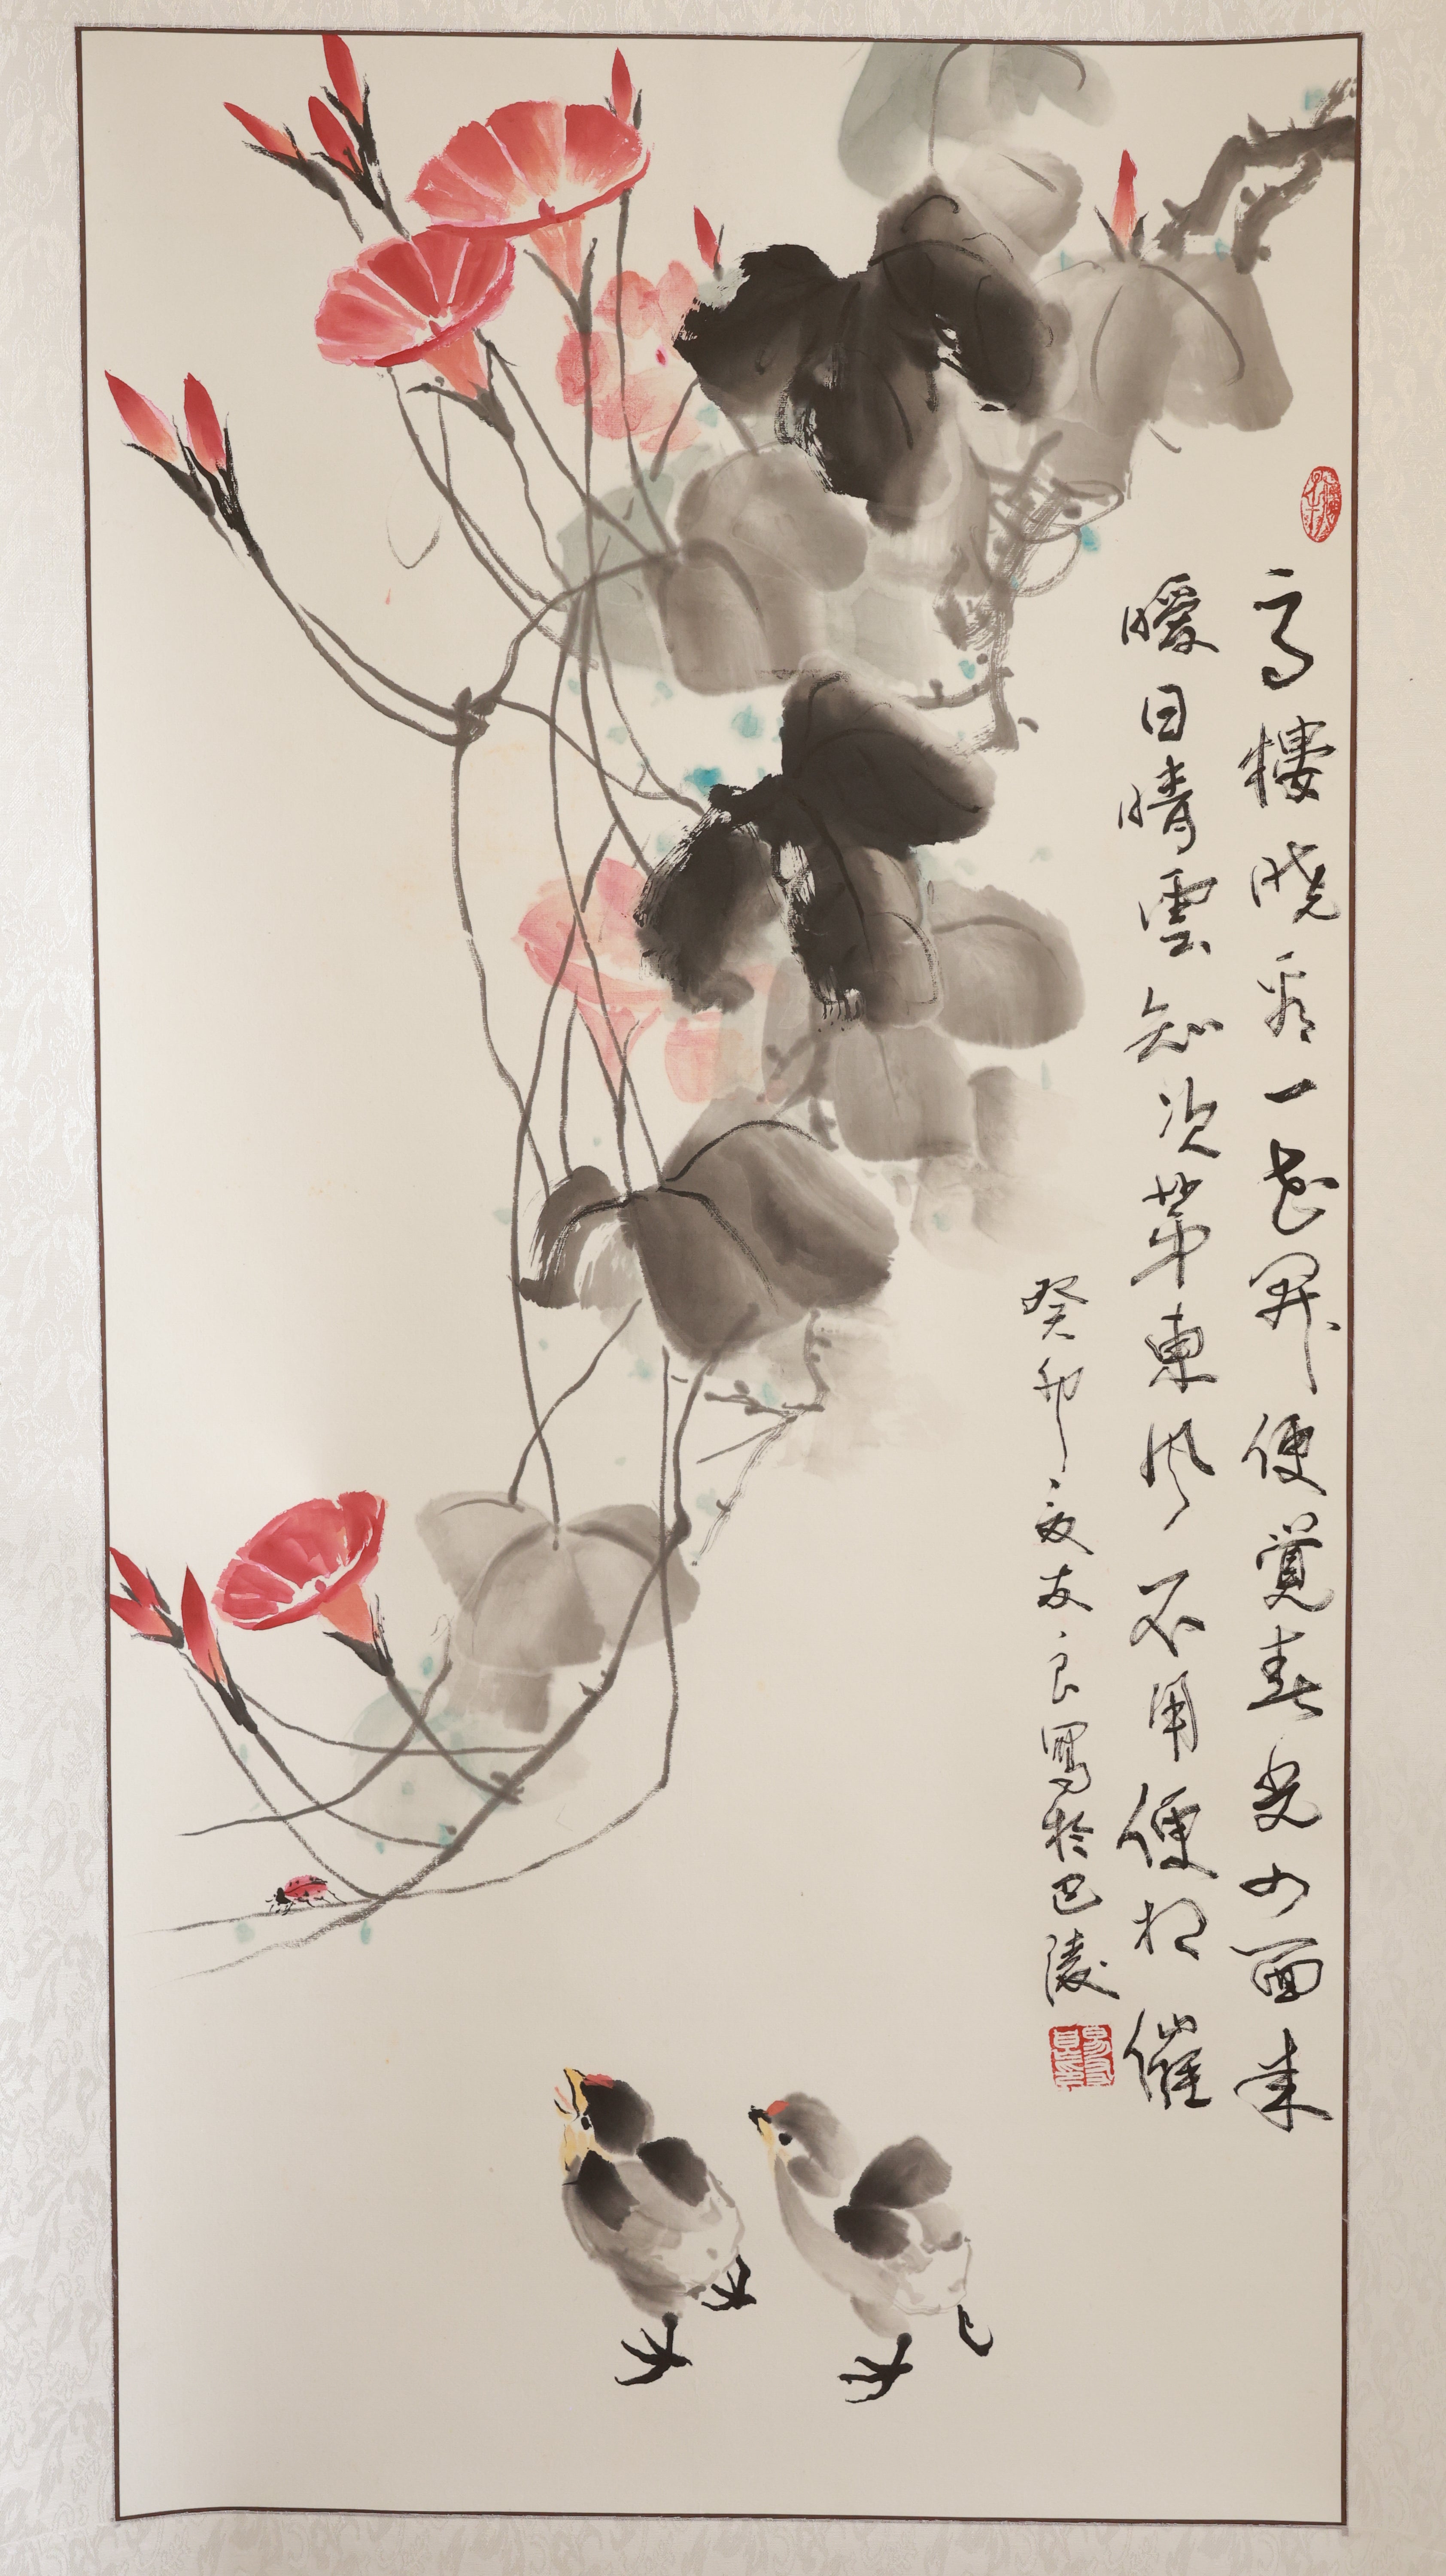 高樓曉看一花開便覺春光四面来
暖日晴雲知次第東風不用便相催
癸卯夏友良寫於巴陵